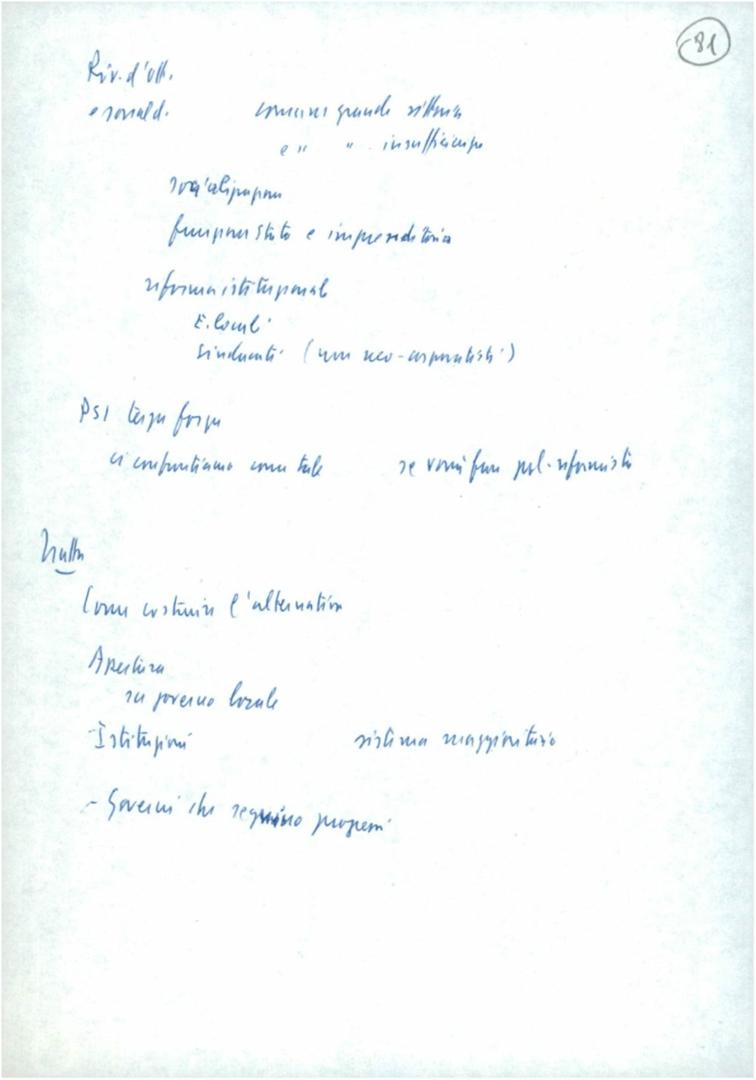 81
Riv. d'ott.
e sociald. comuni grande vittoria
e " " insufficienze
socializzazione
funzione Stato e imprenditoria
riforma istituzionale
E. locali
Sindacati (non neo-corporativisti)
PSI terza forza
ci confrontiamo come tale se vorrà fare pol. riformista
Natta
Come costruire l'alternativa
Apertura
su governo locale
- Istituzioni sistema maggioritario
- Governi che segnino progressi